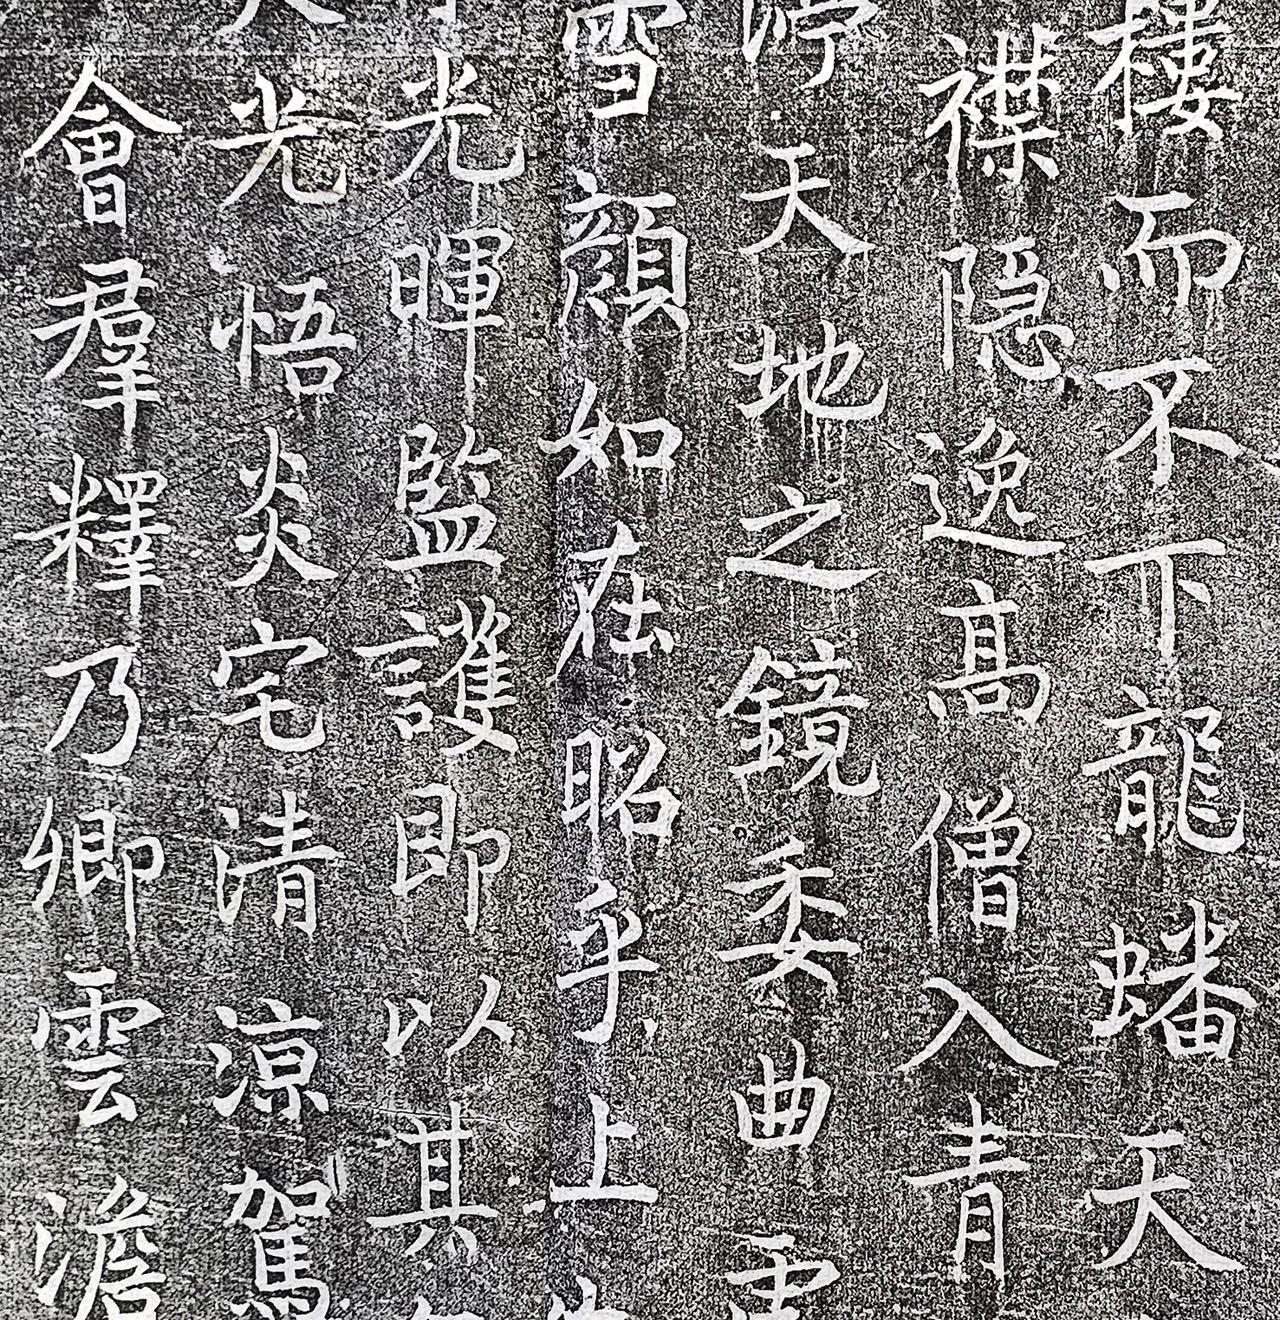 棲而不下龍蟠天
襟隐逸髙僧入青
渟天地之鏡委曲
雪顔如在昭乎上
光暉監護即以其
光悟炎宅清涼駕
會羣釋乃卿雲澹